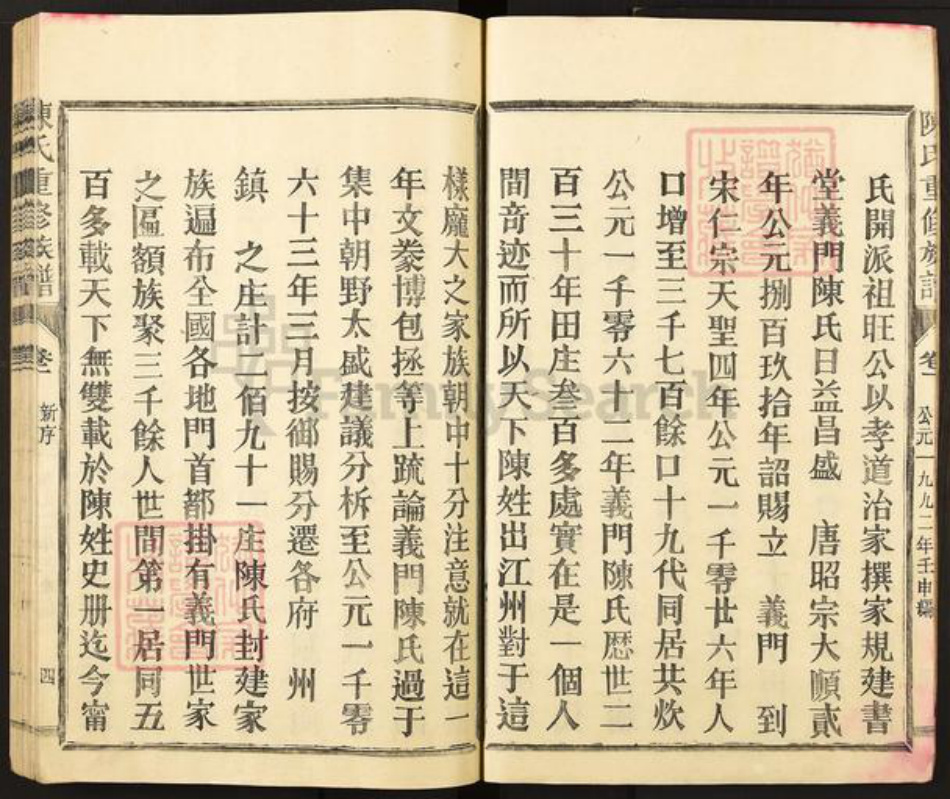 陳氏重修族譜 卷一 公元一九九二年壬申編
氏開派祖旺公以孝道治家撰家規建書
堂義門陳氏日益昌盛 唐昭宗大順貳
年公元捌百玖拾年詔賜立 義門 到
宋仁宗天聖四年公元一千零廿六年人
口增至三千七百餘口十九代同居共炊
公元一千零六十二年義門陳氏歷世二
百三十年田庄叁百多處實在是一個人
間竒迹而所以天下陳姓出江州對于這
樣龐大之家族朝中十分注意就在這一
年文彥博包拯等上䟽論義門陳氏過于
集中朝野太盛建議分析至公元一千零
六十三年三月按御賜分遷各府 州
鎮 之庄計二佰九十一庄陳氏封建家
族遍布全國各地門首都掛有義門世家
之匾額族聚三千餘人世間第一居同五
百多載天下無雙載於陳姓史册迄今甯
陳氏重修族譜 卷一 新序 四
FamilySearch